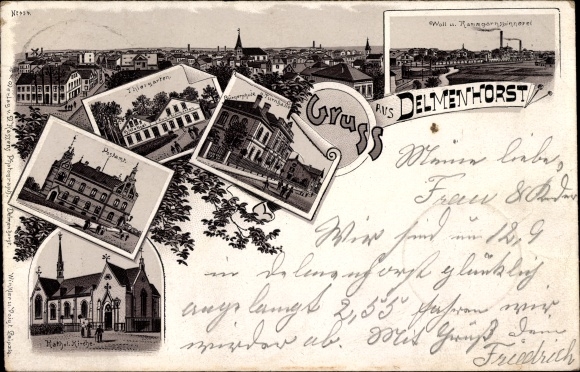 Woll u. Kammgarnspinnerei
Thiergarten
Gruss
aus
DELMENHORST
Postamt
Kathol. Kirche
Meine liebe,
Frau & Kinder
Wir sind um 12,9
in delmenhorst glücklich
angelangt 2,55 fahren wir
wieder ab. Mit Grüß dein
Friedrich